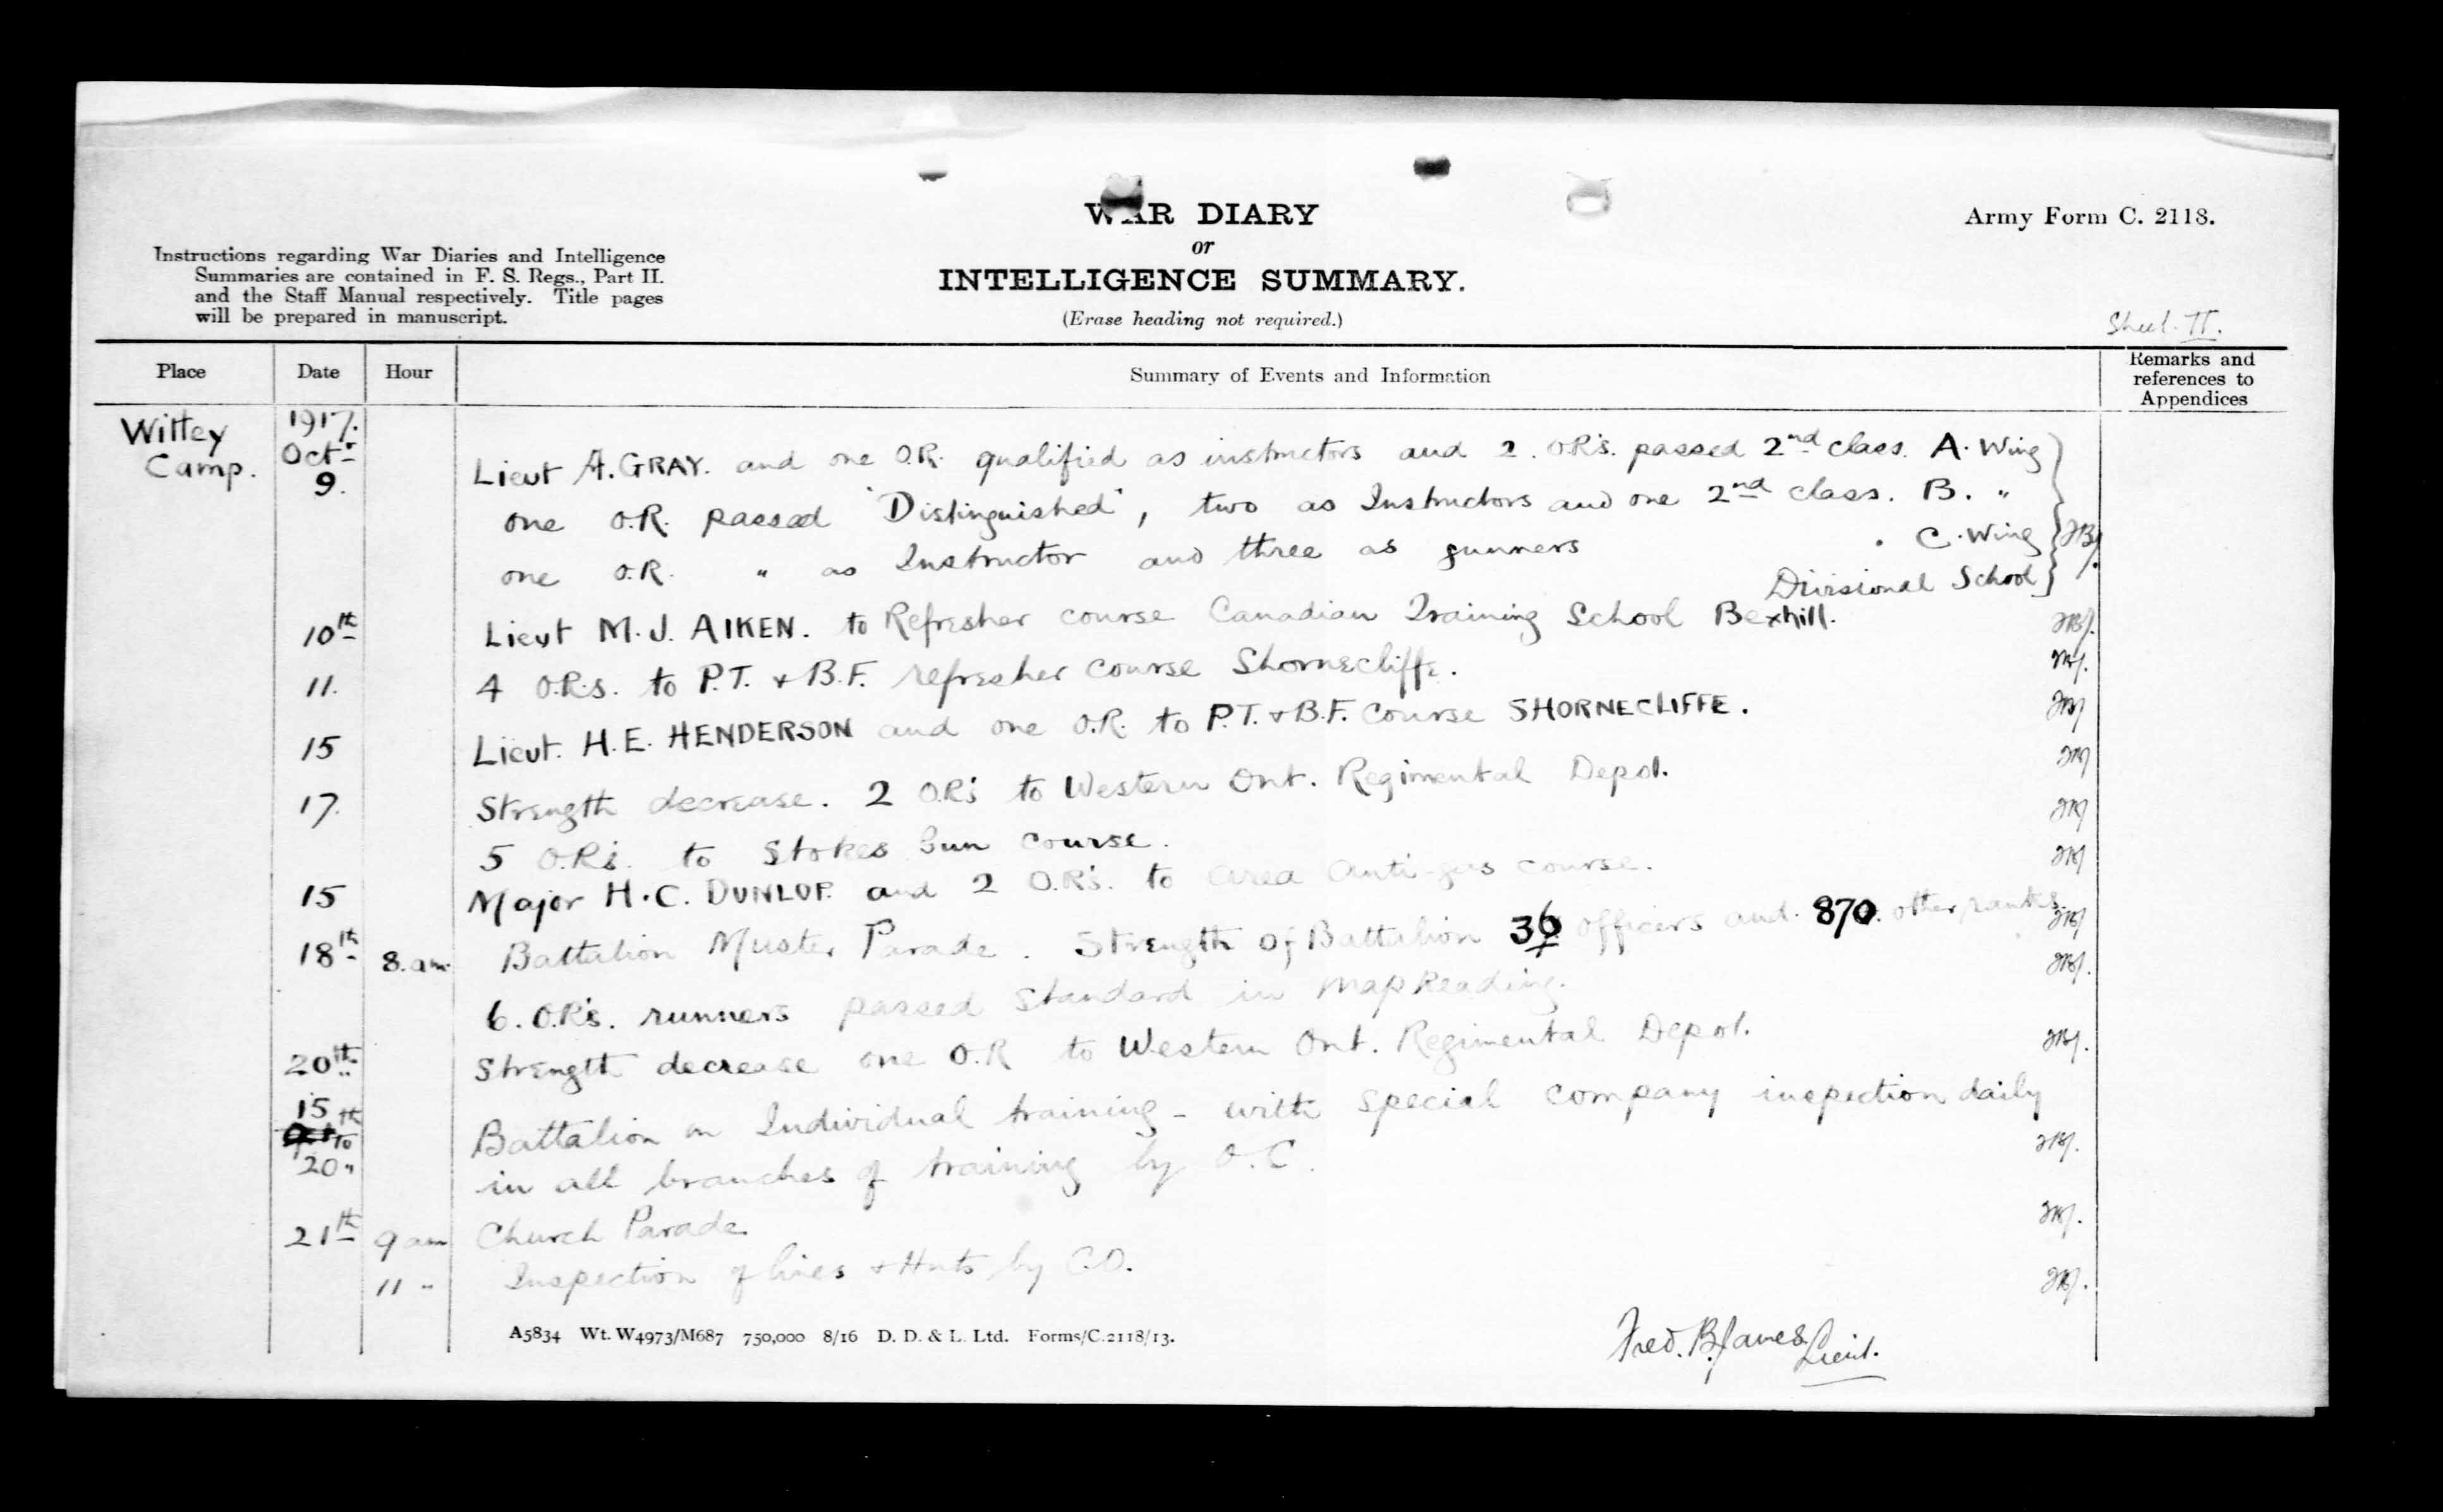 WAR DIARY
or
INTELLIGENCE SUMMARY.
(Erase heading not required.)
Army Form C. 2118.
Instructions regarding War Diaries and Intelligence
Summaries are contained in F. S. Regs., Part II.
and the Staff Manual respectively. Title pages
will be prepared in manuscript.
Sheet. II.
Place Date Hour Summary of Events and Information Remarks and references to Appendices
Witley Camp. 1917. Octr 9. Lieut A. GRAY. and one O.R. qualified as instructors and 2. O.R's. passed 2nd class. A. Wing
one O.R. passed "Distinguished", two as Instructors and one 2nd class. B. "
one O.R. " as Instructor and three as gunners . C. Wing
Divisional School
10th Lieut M. J. AIKEN. to Refresher course Canadian Training School Bexhill.
11. 4 O.R.s. to P.T. & B.F. refresher course Shornecliffe.
15 Lieut. H. E. HENDERSON and one O.R. to P.T. & B.F. Course SHORNECLIFFE.
17. Strength decrease. 2 O.R's to Western Ont. Regimental Depot.
5 O.R's. to Stokes Gun course.
15 Major H. C. DUNLOP. and 2 O.R's. to area Anti-gas course.
18th 8. am. Battalion Muster Parade. Strength of Battalion 36 officers and 870. other ranks.
6. O.R's. runners passed standard in Map Reading.
20th Strength decrease one O.R to Western Ont. Regimental Depot.
15th to 20" Battalion on Individual training - with special company inspection daily
in all branches of training by O.C.
21th 9 am Church Parade
11 " Inspection of lines & Huts by C.O.
Fred. B. James Lieut.
A5834 Wt. W4973/M687 750,000 8/16 D. D. & L. Ltd. Forms/C.2118/13.